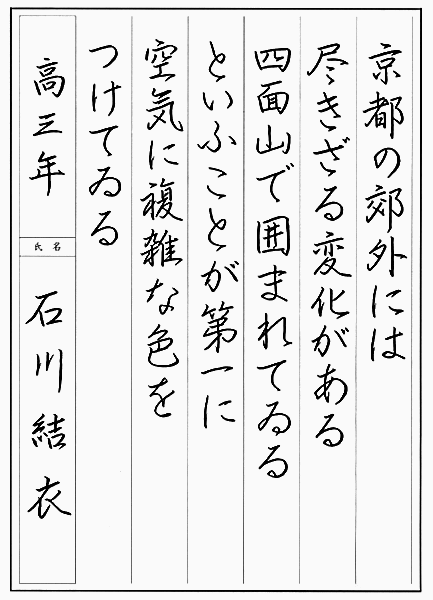 京都の郊外には
尽きざる変化がある
四面山で囲まれてゐる
といふことが第一に
空気に複雑な色を
つけてゐる
高三年
氏名
石川結衣